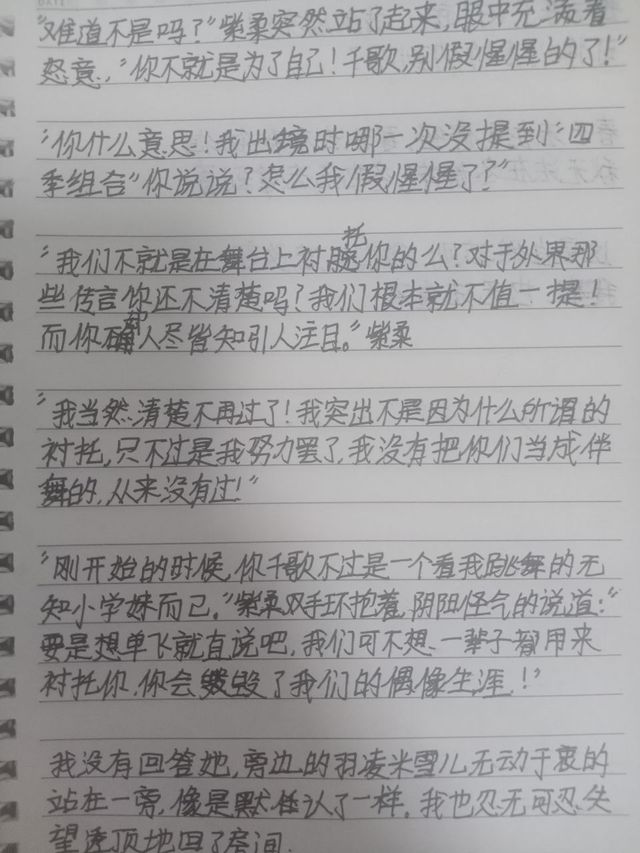 "难道不是吗？"紫柔突然站了起来，眼中充满着
怒意，"你不就是为了自己！千歌，别假惺惺的了！"
"你什么意思！我出镜时哪一次没提到"四
季组合"你说说？怎么我假惺惺了？"
"我们不就是在舞台上衬托你的么？对于外界那
些传言你还不清楚吗？我们根本就不值一提！
而你却人尽皆知引人注目。"紫柔
"我当然清楚不再过了！我突出不是因为什么所谓的
衬托，只不过是我努力罢了，我没有把你们当成伴
舞的，从来没有过！"
"刚开始的时候，你千歌不过是一个看我跳舞的无
知小学妹而已。"紫柔双手环抱着，阴阳怪气的说道："
要是想单飞就直说吧，我们可不想一辈子都用来
衬托你，你会毁了我们的偶像生涯！"
我没有回答她，旁边的羽凌米雪儿无动于衷的
站在一旁，像是默认了一样。我也忍无可忍失
望透顶地回了房间.